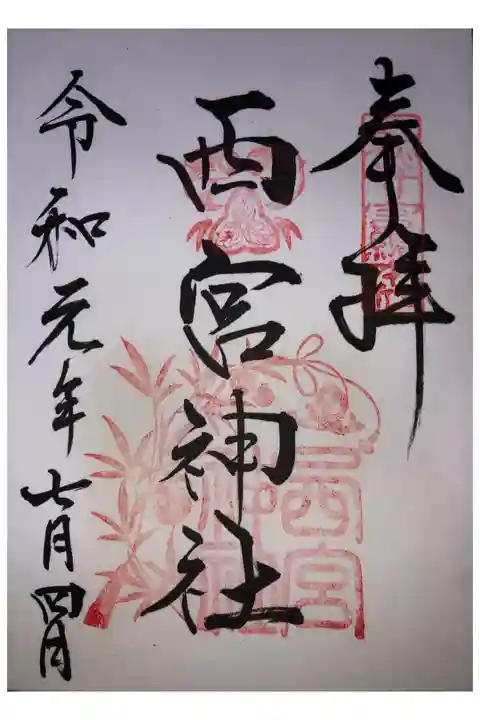 奉拝
西宮神社
令和元年七月四日
西宮